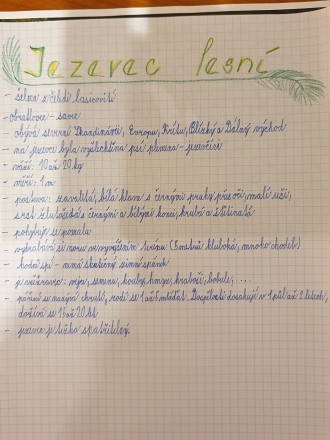 Jezevec lesní
- šelma z čeledi lasicovití
- obratlovec - savec
- obývá severní Skandinávii, Evropu, Krétu, Blízký a Dálný východ
- na jezevce byla vyšlechtěna psí plemena - jezevčíci
- váží: 10 až 20 kg
- měří: 1 m
- postava: zavalitá, bílá hlava s černými pruhy přes oči, malé uši,
srst s černými a bílými konci, hrubá a štětinatá
- pohybuje se pomalu
- nory ve vyvýšeném terénu (5 metrů hluboká, mnoho chodeb)
- hodně spí - nemá skutečný zimní spánek
- potrava: vejce, semena, houby, hmyz, hraboši, bobule, ...
- páření, rodí se 1 až 5 mláďat. Dospělosti dosahují v 1 půl až 2 letech,
dožívá se 15 až 20 let
- jezevec je těžko spatřitelný